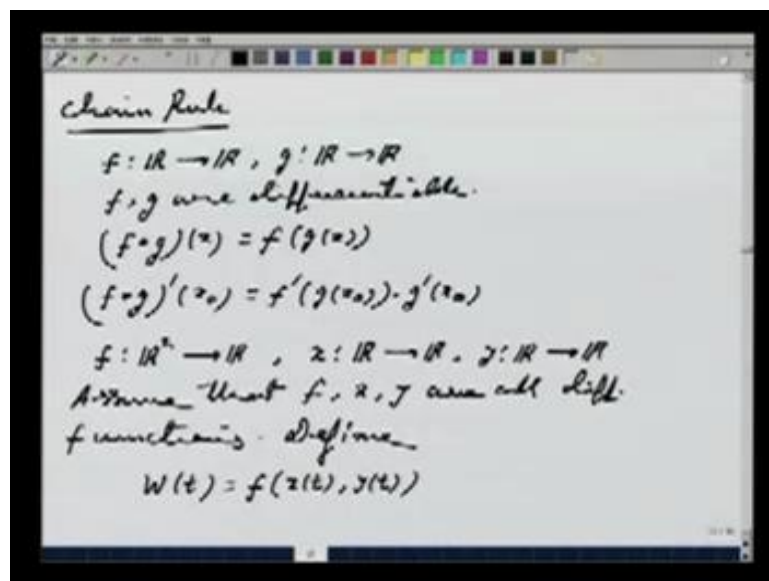 Chain Rule
f : ℝ → ℝ , g : ℝ → ℝ
f, g are differentiable.
(f∘g)(x) = f(g(x))
(f∘g)'(x₀) = f'(g(x₀)) · g'(x₀)
f : ℝ² → ℝ , x : ℝ → ℝ, y : ℝ → ℝ
Assume that f, x, y are all diff.
functions. Define
W(t) = f(x(t), y(t))